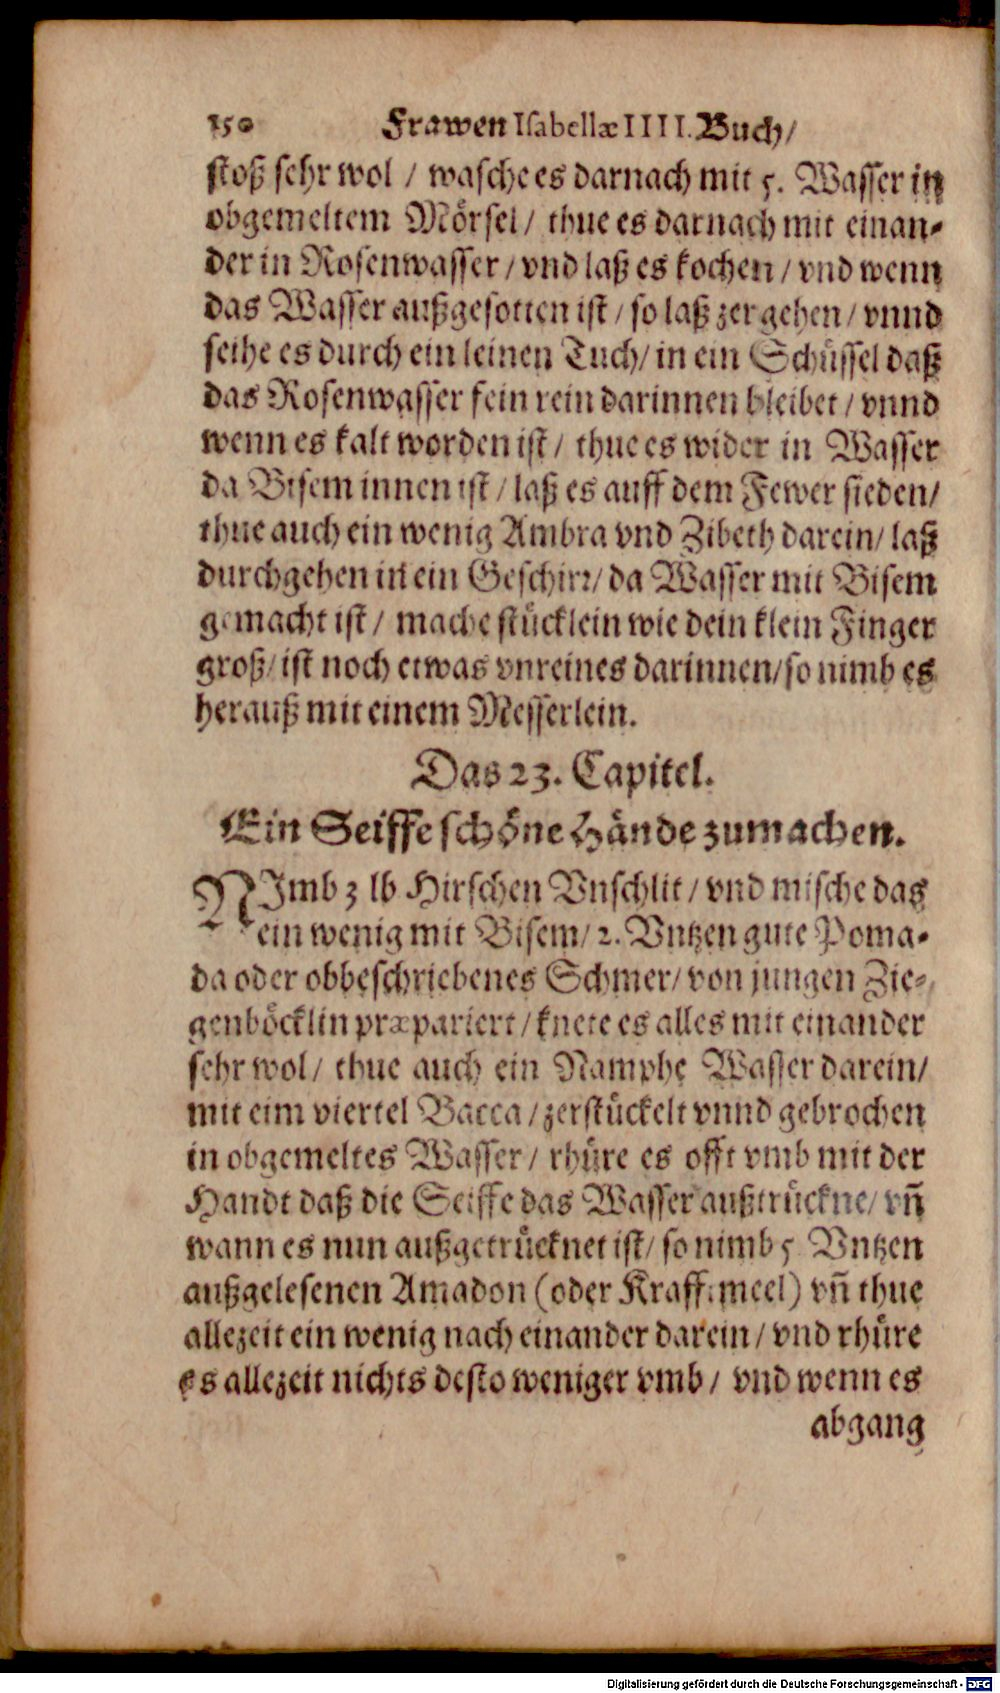 150 Frawen Isabellæ IIII. Buch/
stoß sehr wol / wasche es darnach mit 5. Wasser in
obgemeltem Mörsel / thue es darnach mit einan-
der in Rosenwasser / vnd laß es kochen / vnd wenn
das Wasser außgesotten ist / so laß zergehen / vnnd
seihe es durch ein leinen Tuch / in ein Schüssel daß
das Rosenwasser fein rein darinnen bleibet / vnnd
wenn es kalt worden ist / thue es wider in Wasser
da Bisem innen ist / laß es auff dem Fewer sieden /
thue auch ein wenig Ambra vnd Zibeth darein / laß
durchgehen in ein Geschirr / da Wasser mit Bisem
gemacht ist / mache stücklein wie dein klein Finger
groß / ist noch etwas vnreines darinnen / so nimb es
herauß mit einem Messerlein.
Das 23. Capitel.
Ein Seiffe schöne Hände zumachen.
NImb 3 lb Hirschen Vnschlit / vnd mische das
ein wenig mit Bisem / 2. Vntzen gute Poma-
da oder obbeschriebenes Schmer / von jungen Zie-
genböcklin præpariert / knete es alles mit einander
sehr wol / thue auch ein Namphe Wasser darein /
mit eim viertel Bacca / zerstückelt vnnd gebrochen
in obgemeltes Wasser / rhüre es offt vmb mit der
Handt daß die Seiffe das Wasser außtrückne / vñ
wann es nun außgetrücknet ist / so nimb 5 Vntzen
außgelesenen Amadon (oder Krafftmeel) vñ thue
allezeit ein wenig nach einander darein / vnd rhüre
es allezeit nichts desto weniger vmb / vnd wenn es
abgang
Digitalisierung gefördert durch die Deutsche Forschungsgemeinschaft - DFG